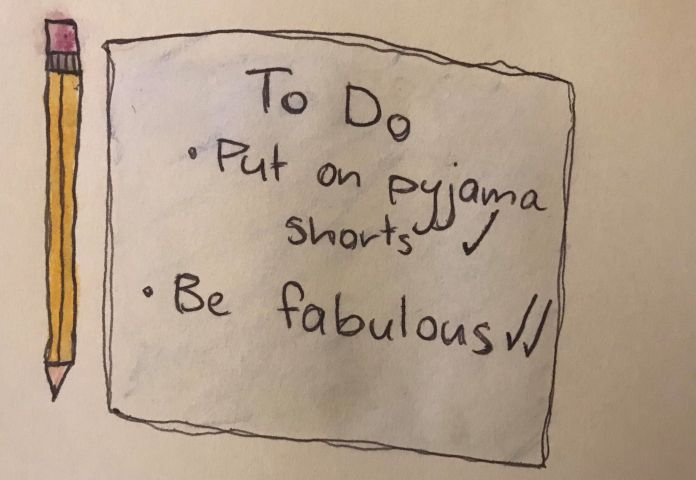 To Do
• Put on pyjama
shorts ✓
• Be fabulous ✓✓